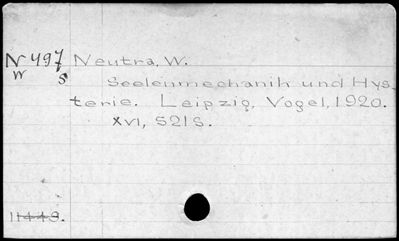 N 497 Neutra, W.
W S Seelenmechanik und Hys-
terie. Leipzig, Vogel, 1920.
XVI, 521 S.
11443.